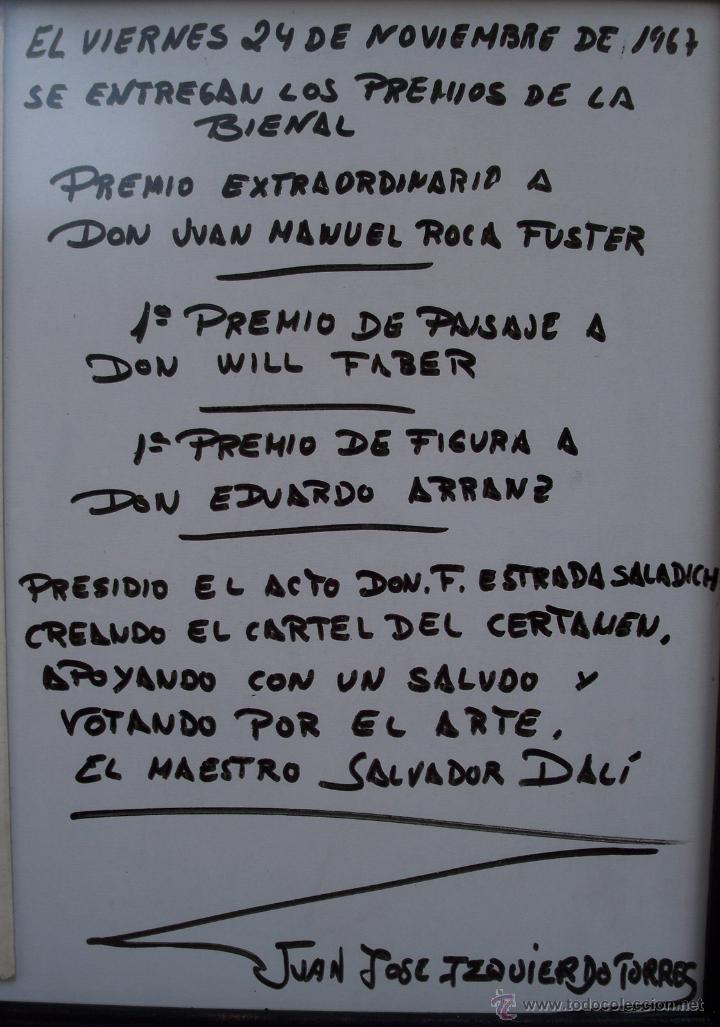 EL VIERNES 24 DE NOVIEMBRE DE 1967
SE ENTREGAN LOS PREMIOS DE LA
BIENAL
PREMIO EXTRAORDINARIO A
DON JUAN MANUEL ROCA FUSTER
1º PREMIO DE PAISAJE A
DON WILL FABER
1º PREMIO DE FIGURA A
DON EDUARDO ARRANZ
PRESIDIO EL ACTO DON. F. ESTRADA SALADICH
CREANDO EL CARTEL DEL CERTAMEN,
APOYANDO CON UN SALUDO Y
VOTANDO POR EL ARTE,
EL MAESTRO SALVADOR DALÍ
JUAN JOSE IZQUIERDO TORRES
www.todocoleccion.net